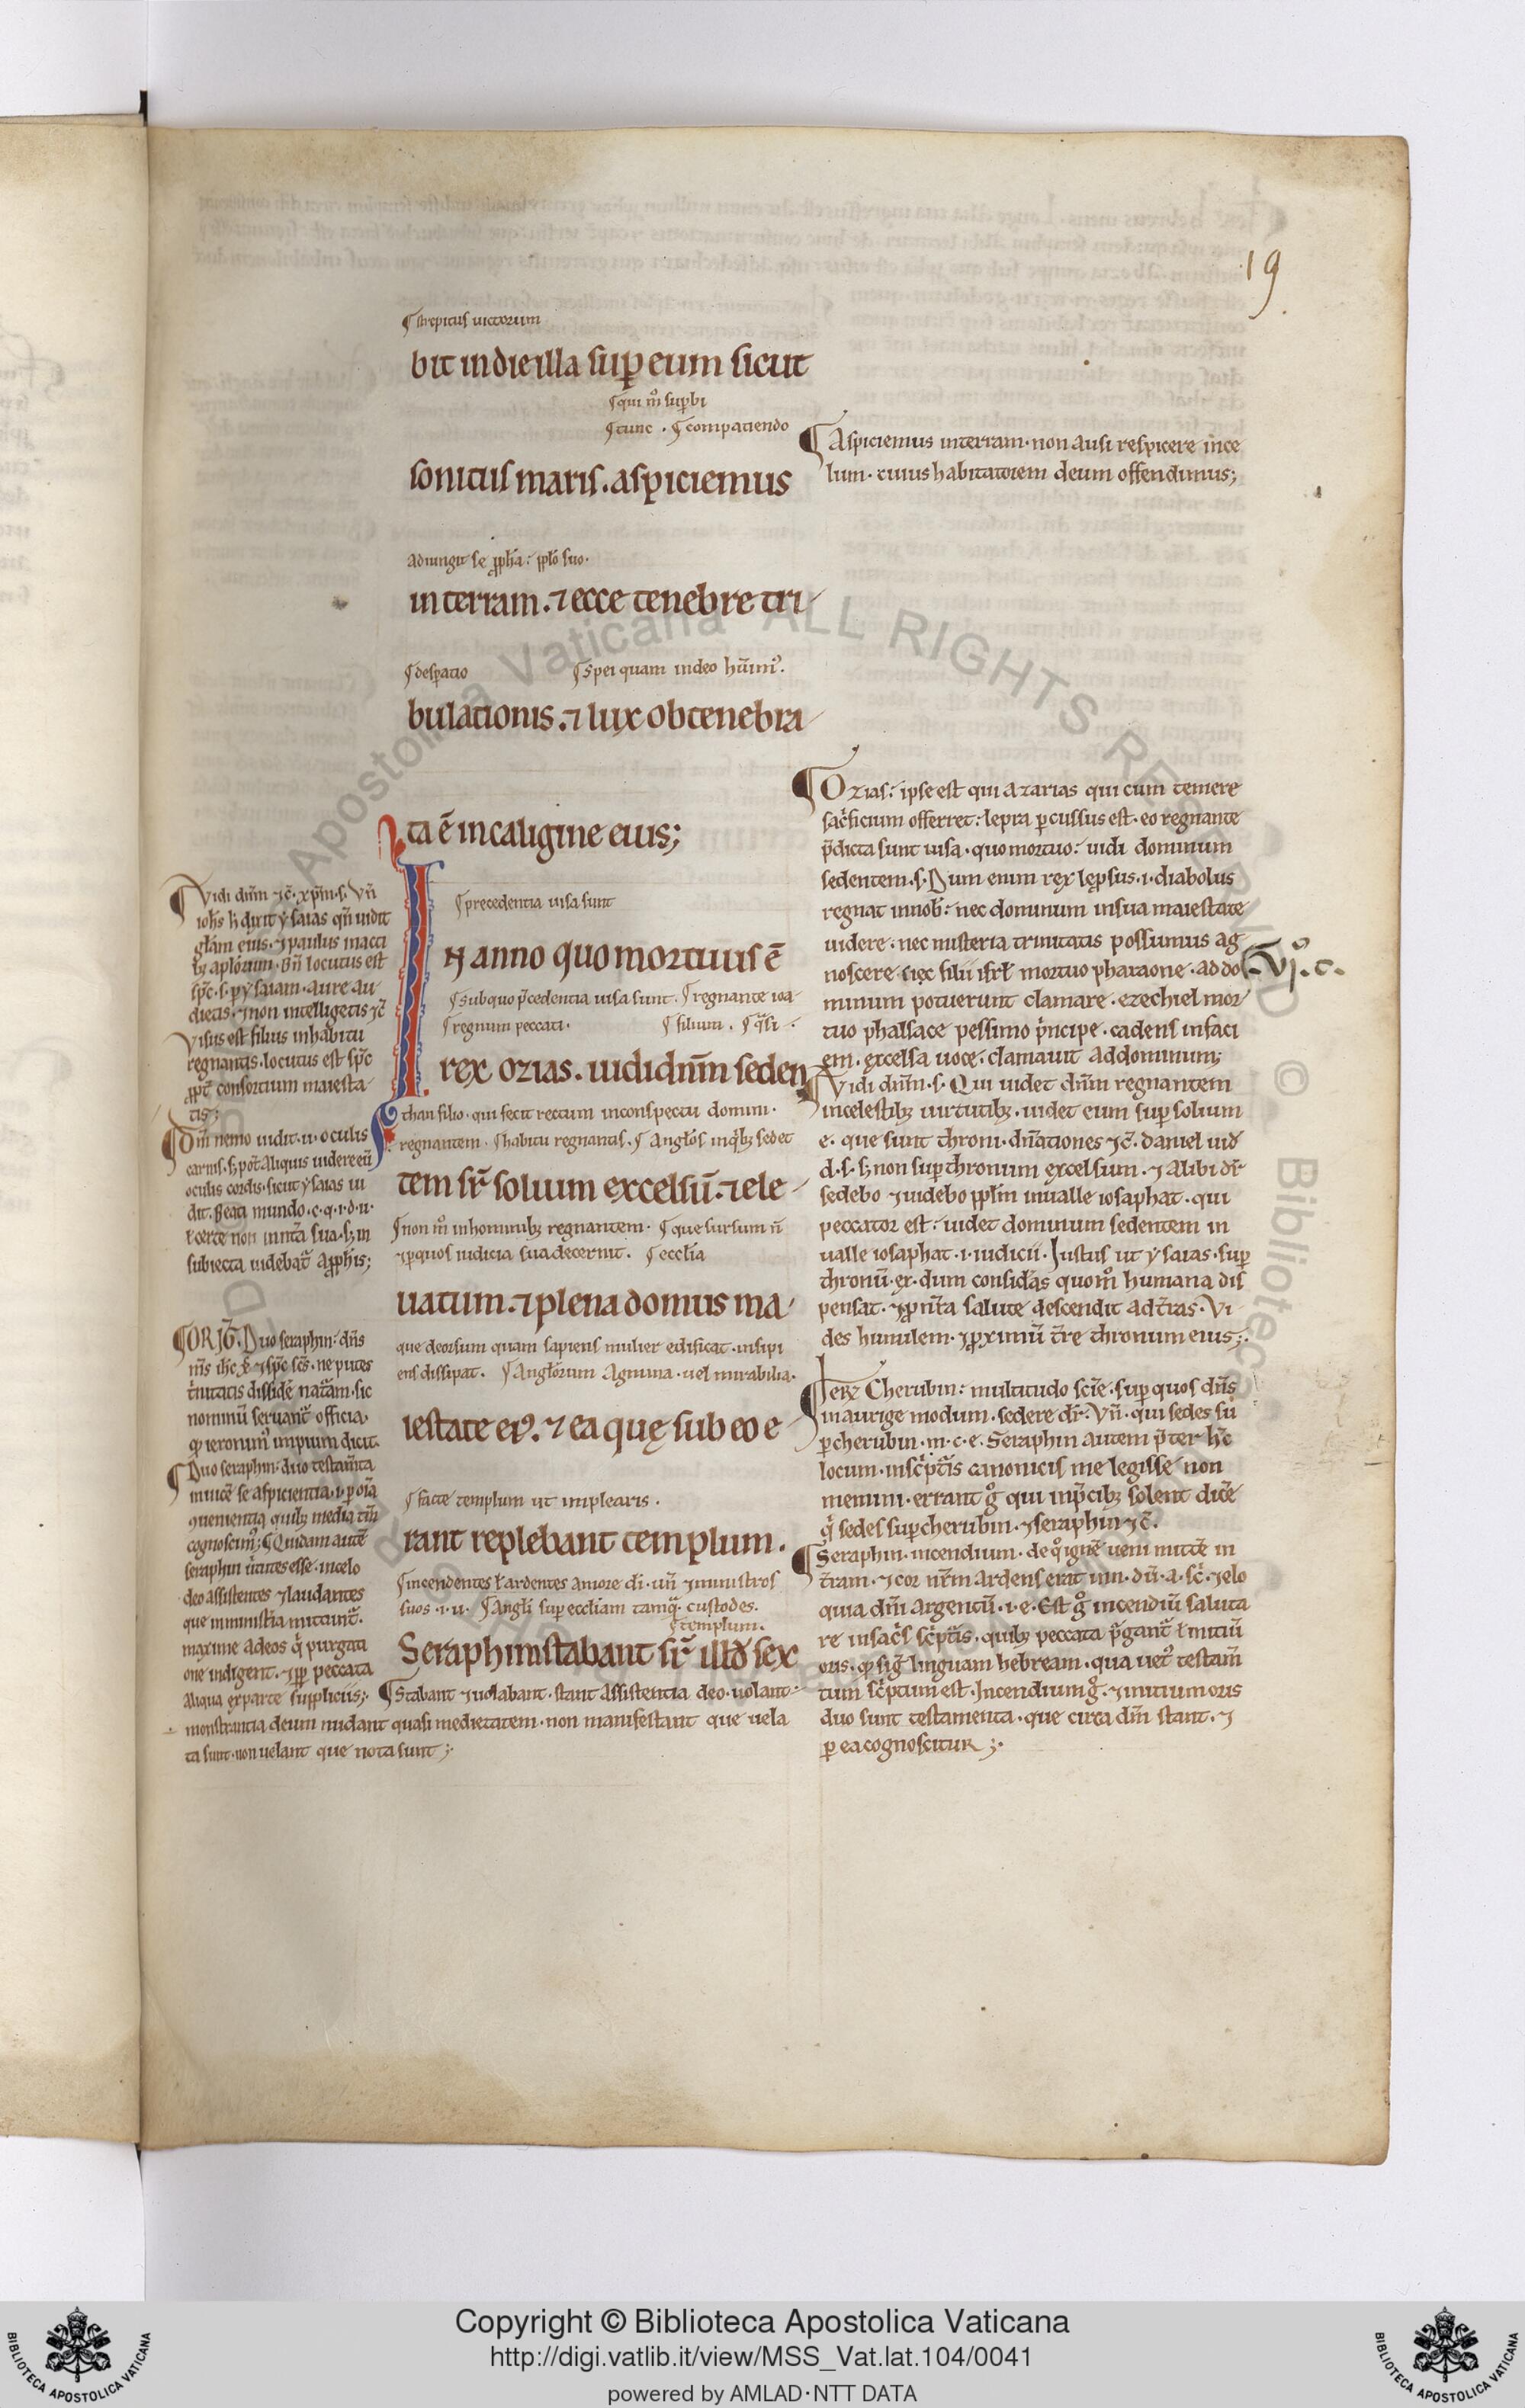 19
¶ strepitus uictorum
bit in die illa suꝑ eum sicut
¶ qui m̊ suꝑbi
¶ tunc . ¶ compatiendo
sonitus maris . aspiciemus
adiungit se ꝓph̄a : pplo suo.
in terram . ⁊ ecce tenebre tri
¶ desperatio ¶ spei quam in deo
bulationis . ⁊ lux obtenebra
ta ē in caligine eius;
¶ precedentia uisa sunt
IN anno quo mortuus ē
¶ sub quo p̄cedentia uisa sunt. ¶ regnante ioa
¶ regnum peccati. ¶ filium .
rex ozias . uidi dnm̄ seden
than filio . qui fecit rectum in conspectu domini.
regnantem . ¶ habitu regnantis . ¶ Angl̄os in qͥbꝫ sedet
tem sr̄ solium excelsū . ⁊ ele
¶ non m̊ in hominibꝫ regnantem. ¶ que sursum ñ
⁊ ꝑ quos iudicia sua decernit. ¶ eccl̄ia
uatum . ⁊ plena domus ma
que deorsum quam sapiens mulier edificat . insipi
ens dissipat. ¶ Angl̄orum agmina . uel mirabilia.
iestate eiꝰ. ⁊ ea quę sub eo e
¶ facte templum ut implearis .
rant replebant templum .
¶ incendentes ł ardentes amore dī . un̄ ⁊ ministros
suos .i.u. ¶ Angl̄i suꝑ eccl̄iam tamq̄ . custodes.
¶ templum.
Seraphim stabant sr̄ illđ sex
¶ Stabant ⁊ uolabant . stant assistentia deo . uolant
monstrantia deum nudant quasi medietatem . non manifestant que uela
ta sunt . non uelant que nota sunt ;
¶ Vidi dnm̄ ⁊c̄ . xp̄m .s. Vn̄
ioh̄s h̄ dixit ysaias qn̄ uidit
gl̄am eius . ⁊ paulus in acti
bꝫ aplorum . Bn̄ locutus est
sp̄c .s. ꝑ ysaiam . aure au
dietis . ⁊ non intelligetis ⁊c̄
Visus est filius in habitu
regnantis . locutus est sp̄c
ꝓpt̄ consortium maiesta
tis;
¶ Dm̄ nemo uidit . u . oculis
carnis . sꝫ pot̄ aliquis uidere eū
oculis cordis . sicut ysaias ui
dit . Beati mundo .c.q.i.d.u.
ł certe non iuxta sua . sꝫ in
subiecta uidebat̄ a ꝓph̄is;
¶ ORIG̅. Duo seraphin : dn̄s
nr̄s ih̄c x̄ ⁊ sp̄c sc̄s . ne putes
tͥnitatis disside nat̄am . sic
nominū seruant̄ officia.
qd̄ ieronimꝰ impium dicit.
¶ Duo seraphin : duo testam̄ta
inuicē se aspicientia .i. ꝑ oīa
ꝯuenientia quibꝫ media
cognoscimꝰ; ¶ Quidam autē
seraphin uͥtutes esse . in celo
deo assistentes ⁊ laudantes
que in minist̄ia mittunt̄.
maxime ad eos qͥ purgati
one indigent . ⁊ ꝓp̄ peccata
aliqua ex parte suppliciis;
¶ Aspiciemus in terram . non ausi respicere in ce
lum . cuius habitatorem deum offendimus;
¶ Ozias : ipse est qui azarias qui cum temere
sacͥficium offerret : lepra ꝑcussus est . eo regnante
p̄dicta sunt uisa . quo mortuo : uidi dominum
sedentem .s. Dum enim rex lep̄sus .i. diabolus
regnat in nob̄ : nec dominum in sua maiestate
uidere . nec misteria trinitatis possumus ag
noscere sic filii isrl̄ mortuo pharaone . ad do
VI . c.
minum potuerunt clamare . ezechiel mor
tuo phallace pessimo pͥncipe . cadens in faci
em . excelsa uoce . clamauit ad dominum;
¶ Vidi dnm̄ .s. Qui uidet dnm̄ regnantem
in celestibꝫ uirtutibꝫ . uidet eum suꝑ solium
e. que sunt throni . dn̄ationes ⁊c̄ . daniel uid̄
d.s. sꝫ non suꝑ thronum excelsum . ⁊ alibi dr̄
sedebo ⁊ uidebo ppl̄m in ualle iosaphat . qui
peccator est : uidet dominum sedentem in
ualle iosaphat .i. iudicii . Iustus ut ysaias . suꝑ
thronū . ex . dum consid̄as quom̊ humana dis
pensat . ⁊ ꝓ nr̄a salute descendit ad t̄ras . Vi
des humilem . ⁊ ꝓximū t̄re thronum eius;
¶ Ier̄ Cherubin : multitudo scīe . suꝑ quos dn̄s
in aurige modum . sedere dr̄ . Vn̄ . qui sedes su
ꝑ cherubin .m.c.e. Seraphin autem p̄ter h̄c
locum . in scͥptͥs canonicis me legisse non
memini . errant gͦ qui in p̄cibꝫ solent dicē
qͥ sedes suꝑ cherubin . ⁊ seraphin ⁊c̄.
¶ Seraphin . incendium . de qͦ ignē ueni mittē in
t̄ram . ⁊ cor nr̄m ardens erat
quia dm̄ argentū .i.e. Est gͦ incendiū saluta
re in sacͥs scͥptͥs . quibꝫ peccata p̄gant̄ ł initiū
oris . qd̄ sig̅ linguam hebream . qua uetꝰ testam̄
tum scͥptum est . Incendium gͦ . ⁊ initium oris
duo sunt testamenta . que circa dm̄ stant . ⁊
ꝑ ea cognoscitur ;
Copyright © Biblioteca Apostolica Vaticana
http://digi.vatlib.it/view/MSS_Vat.lat.104/0041
powered by AMLAD·NTT DATA
BIBLIOTECA APOSTOLICA VATICANA
BIBLIOTECA APOSTOLICA VATICANA